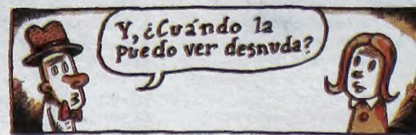 Y, ¿Cuándo la
puedo ver desnuda?